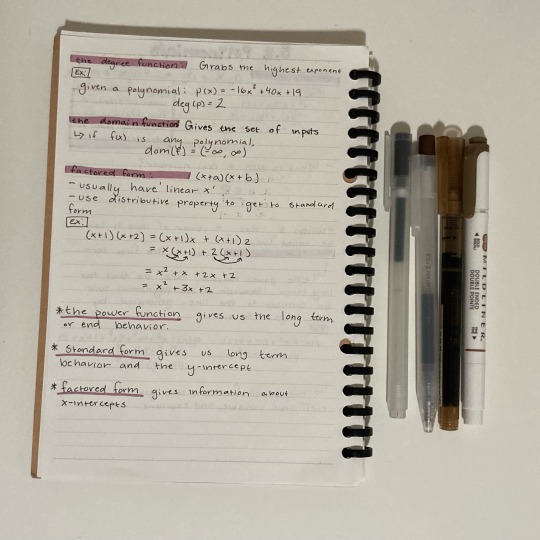 the degree function: Grabs the highest exponent
Ex:
given a polynomial: p(x) = -16x² + 40x + 19
deg(p) = 2
the domain function Gives the set of inputs
↳ if f(x) is any polynomial,
dom(f) = (-∞, ∞)
factored form: (x+a)(x+b)
- usually have 'linear x'
- use distributive property to get to standard
form
ex:
(x+1)(x+2) = (x+1)x + (x+1)2
= x(x+1) + 2(x+1)
= x² + x + 2x + 2
= x² + 3x + 2
* the power function gives us the long term
or end behavior.
* standard form gives us long term
behavior and the y-intercept
* factored form gives information about
x-intercepts
MILDLINER
DOUBLE ENDED
DOUBLE POINTE